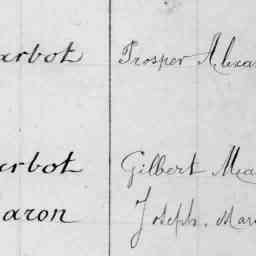 arbot Prosper Alexa
arbot Gilbert Mea
aron Joseph. Mar